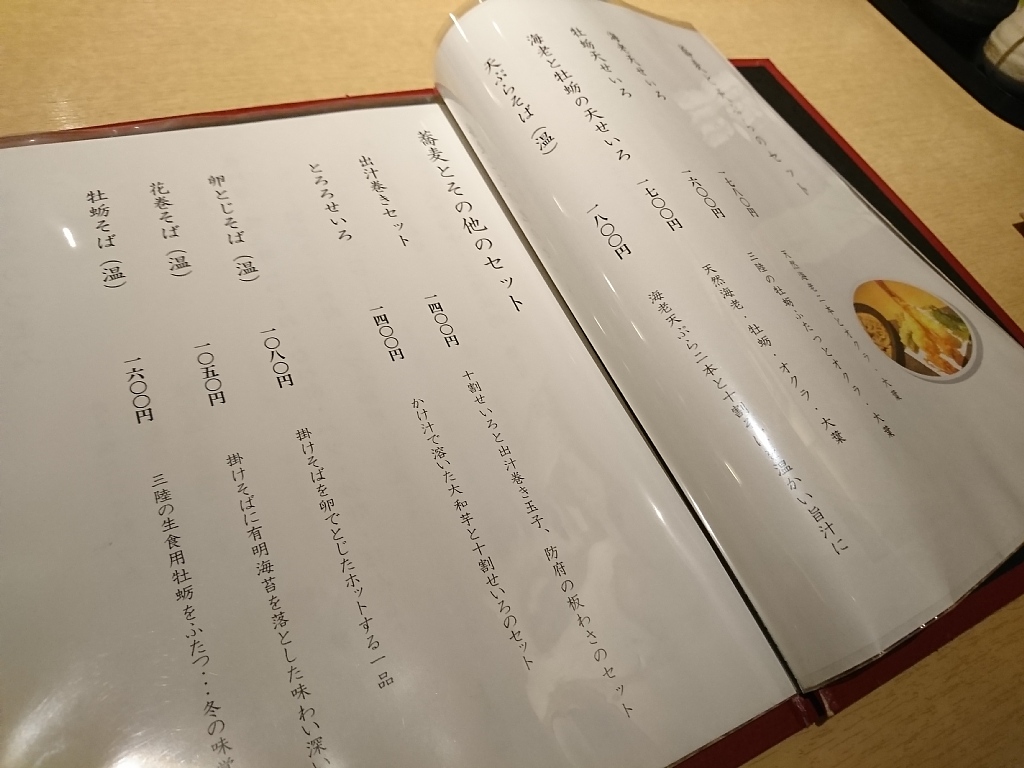 海老天せいろ
一七八〇円
天然海老二本とオクラ・大葉
牡蛎天せいろ
一六〇〇円
三陸の牡蛎ふたつとオクラ・大葉
海老と牡蛎の天せいろ
一七〇〇円
天然海老・牡蛎・オクラ・大葉
天ぷらそば（温）
一八〇〇円
海老天ぷら二本と十割そば 温かい旨汁に
蕎麦とその他のセット
出汁巻きセット
一四〇〇円
十割せいろと出汁巻き玉子、防府の板わさのセット
とろろせいろ
一四〇〇円
かけ汁で溶いた大和芋と十割せいろのセット
卵とじそば（温）
一〇八〇円
掛けそばを卵でとじたホットする一品
花巻そば（温）
一〇五〇円
掛けそばに有明海苔を落とした味わい深い
牡蛎そば（温）
一六〇〇円
三陸の生食用牡蛎をふたつ・・・冬の味覚